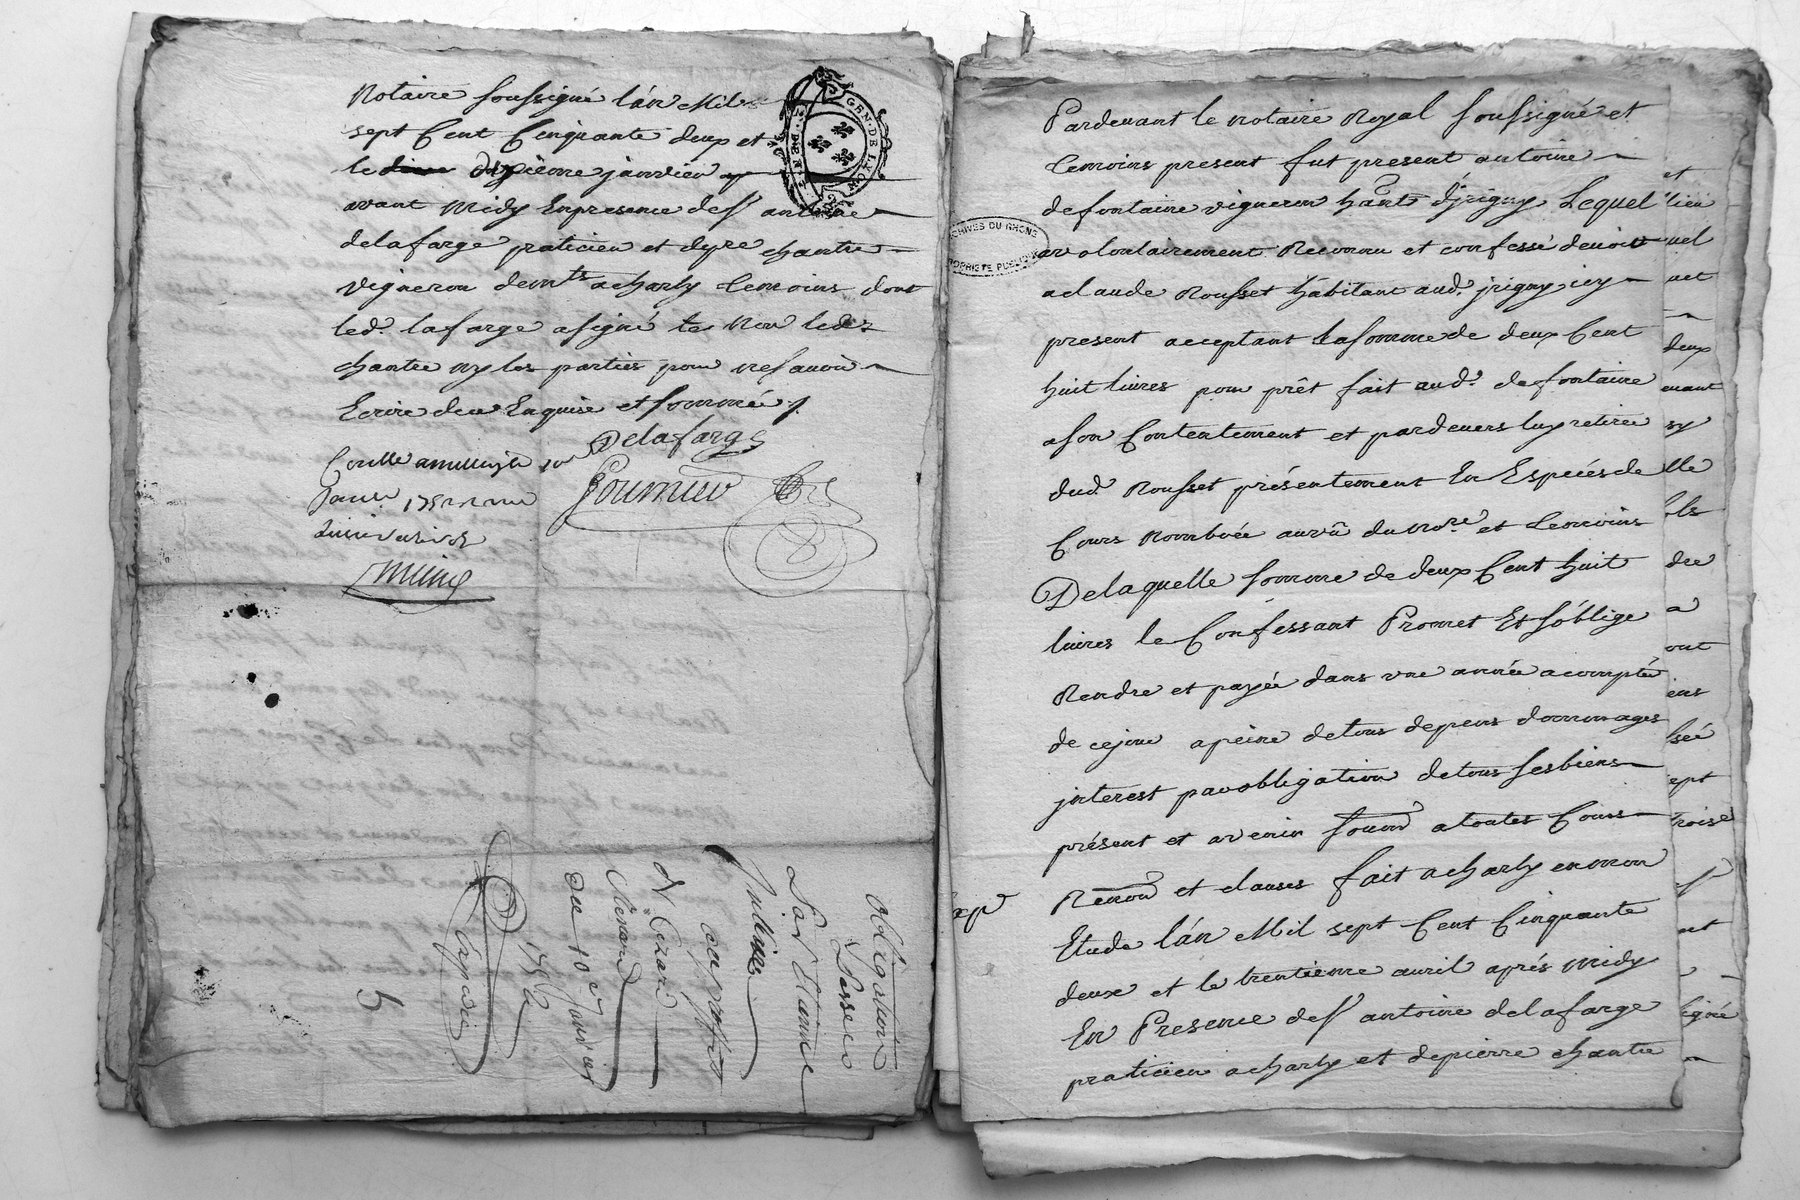 Notaire soussigné l'án Mil
sept Cent Cinquante deux et
le dixième janvier
avant Midy En presence des S. antoine
delafarge praticien et de pre chantre
vigneron dem.ts a charly temoins dont
led. lafarge a signé te Non ledt
chantre ny les parties pour ne savoir
Ecrire de ce Enquise et sommé /.
Delafarge
Goumieu
janv. 175
GEN. DE LYON
obligation
passée
par Etienne
Julien
au profit
d.
du 10e janvier
1752
Expedié
5
Pardevant le notaire Royal soussigné et
temoins present fut present antoine
defontaine vigneron hant d'jrigny Lequel
a volontairement Reconnu et confessé devoir
a claude Rousset habitant aud. jrigny icy
present acceptant La somme de deux Cent
huit livres pour prêt fait aud. defontaine
a son Contentement et pardevers luy retirée
dud. Rousset présentement En Espéces de
Cours Nombrée au vû du no.re et temoins
De laquelle somme de deux Cent huit
livres le Confessant Promet Et s'óblige
Rendre et payée dans une année a compté
de ce jour a peine de tous depens dommages
jnterest par obligation de tous ses biens
présent et avenir soum a toutes Cours
Renon et clauses fait a charly en mon
Etude l'án Mil sept Cent Cinquante
deux et le trentième avril aprés Midy
En Presence des S antoine delafarge
praticien a charly et de pierre chantre
ARCHIVES DU RHONE
PROPRIETE PUBLIQUE
exp